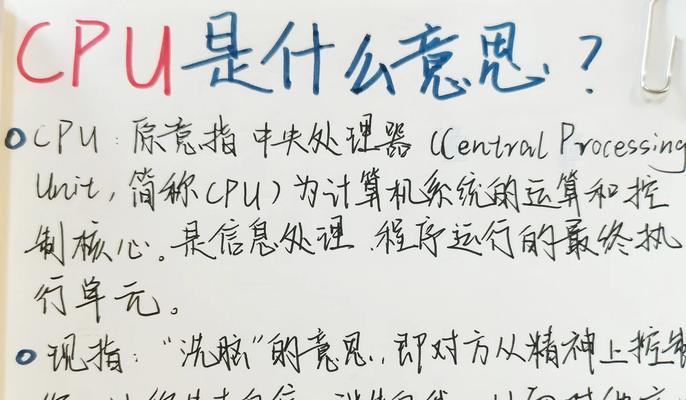 CPU是什么意思？
CPU：原意指中央处理器（Central Processing
Unit，简称CPU）为计算机系统的运算和控
制核心。是信息处理、程序运行的最终执
行单元。
现指："洗脑"的意思，即对方从精神上控制